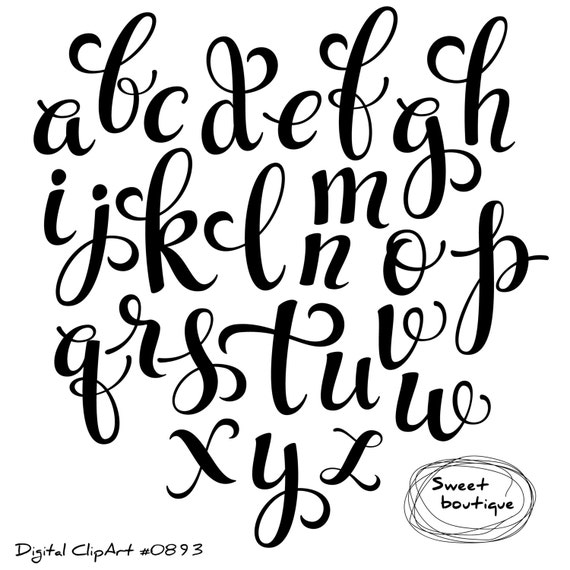 a b c d e f g h
i j k l m
n o p
q r s t u v w
x y z
Sweet
boutique
Digital ClipArt #0893